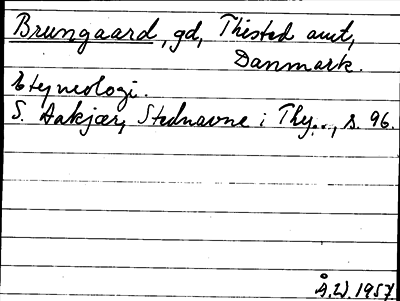 Brungaard, gd, Thisted amt,
Danmark.
Etymologi.
S. Aakjær, Stednavne i Thy..., s. 96.
Å.W. 1957